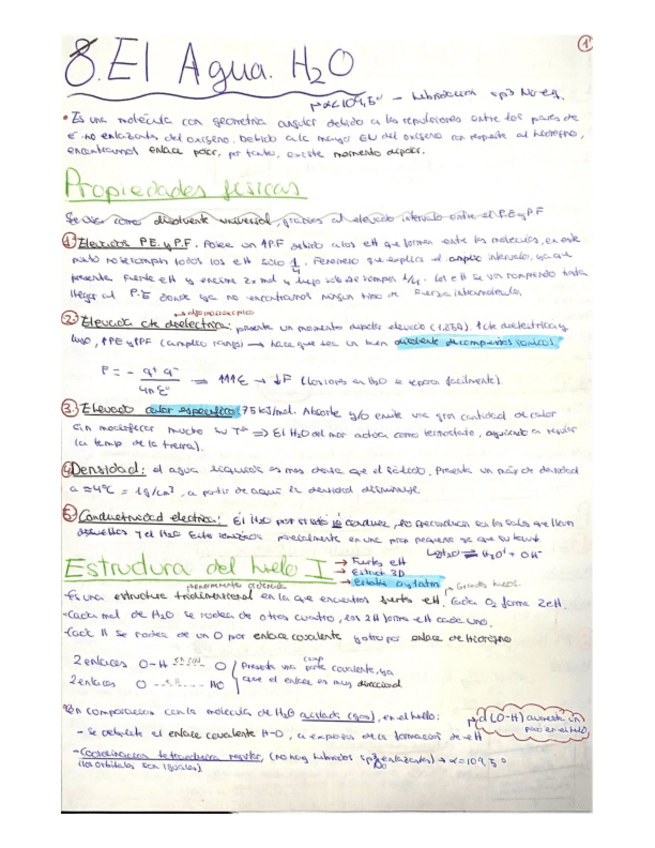 1
8. El Agua. H2O
α<109,5° – hibridación sp3 No eq.
• Es una molécula con geometría angular debido a las repulsiones entre los pares de
e- no enlazantes del oxígeno. Debido a la mayor EN del oxígeno con respecto al hidrógeno,
encontramos enlace polar, por tanto, existe momento dipolar.
Propiedades físicas
Se usa como disolvente universal, gracias al elevado intervalo entre el P.E y P.F
1. Elevados P.E. y P.F. Posee un ↑P.F debido a los eH que forman entre las moléculas, en este
punto no se rompen todos los eH sólo 1/4. Fenómeno que explica el amplio intervalo, ya que
presenta fuerte eH y encima 2x mol y luego solo se rompen 1/4. Los eH se van rompiendo hasta
llegar al P.E donde ya no encontramos ningún tipo de fuerza intramolecular.
2. Elevada cte dieléctrica: presenta un momento dipolar elevado (1,85D). ↑cte dieléctrica y
luego, ↑PE y PF (amplio rango) → hace que sea un buen disolvente de compuestos iónicos.
F = - q+ q- / 4π ε ⇒ ↑↑↑ε → ↓F (los iones en H2O se separa facilmente).
3. Elevado calor específico (75 kJ/mol. Absorbe y/o emite una gran cantidad de calor
sin modificar mucho su Tª ⇒ El H2O del mar actúa como termostato, ayudando a regular
la temp de la tierra).
4. Densidad: el agua líquida es mas densa que el sólido. Presenta un máx de densidad
a ≈4°C = 1g/cm3, a partir de aquí la densidad disminuye.
5. Conductividad eléctrica: El H2O por sí solo no conduce, lo que conduce son las sales que lleva
disueltas y el H2O está ionizada parcialmente en una prop pequeña ya que su
H2O ⇌ H3O+ + OH-
Estrudura del hielo I
→ Fuertes eH
→ Estruct 3D
→ estable
Grandes huecos.
-Es una estructura tridimensional en la que encuentras fuertes eH. Cada O2 forma 2eH.
-Cada mol de H2O se rodea de otros cuatro, los 2H forma eH cada uno.
-Cada H se rodea de un O por enlace covalente y otro por enlace de hidrógeno
2 enlaces O-H ------ O
2 enlaces O ------ HO
Presenta una comp parte covalente, ya
que el enlace es muy direccional
*En comparación con la molécula de H2O aislada (gas), en el hielo:
d (O-H) aumenta un
poco en el hielo
- Se debilita el enlace covalente H-O, a expensas de la formación de eH
- Coordinación tetraédrica regular, (no hay híbridos sp3 enlazantes) → α=109,5°
(los orbitales son iguales)